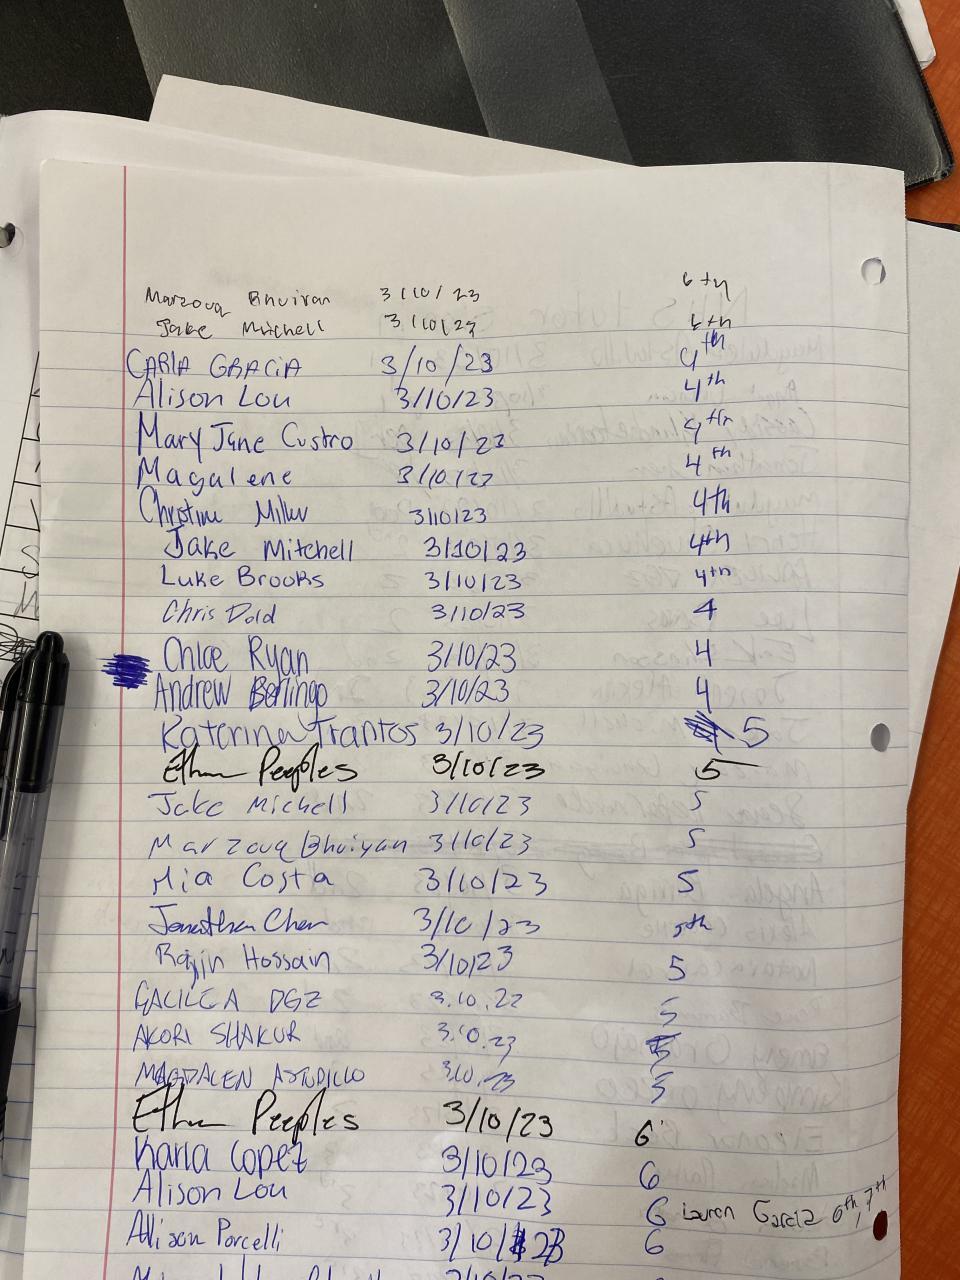 Marzouq Bhuiyan 3/10/23 6th
Jake Mitchell 3/10/23 6th
CARLA GRACIA 3/10/23 4th
Alison Lou 3/10/23 4th
Mary Jane Custro 3/10/23 4th
Magalene 3/10/22 4th
Christine Miller 3/10/23 4th
Jake Mitchell 3/10/23 4th
Luke Brooks 3/10/23 4th
Chris Dold 3/10/23 4
Chloe Ryan 3/10/23 4
Andrew Berlingo 3/10/23 4
Katerina Frantos 3/10/23 5
Ethan Peeples 3/10/23 5
Jake Michell 3/10/23 5
Marzouq Bhuiyan 3/10/23 5
Mia Costa 3/10/23 5
Jonathan Chen 3/10/23 5th
Rajin Hossain 3/10/23 5
3.10.22 5
AKORI SHAKUR 3.10.23 5
MAGDALEN ASTUDILLO 3.10.23 5
Ethan Peeples 3/10/23 6
Karla Lopez 3/10/23 6
Alison Lou 3/10/23 6 Lauren Garcia 6th, 7th
Allison Porcelli 3/10/23 6